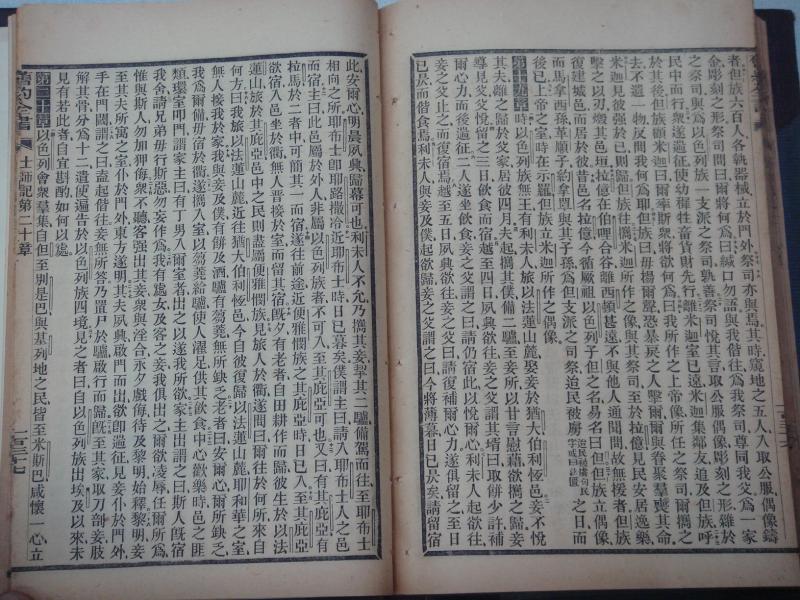 者但族六百人各執器械立於門外祭司亦與焉其時窺地之五人入取公服偶像鑄
金彫刻之形祭司問爾將何爲曰緘口勿語與我偕往爲我祭司尊同我父爲一家
之祭司與爲以色列族一支派之祭司孰善祭司悅其言取公服偶像彫刻之形雜於
民中而行衆遂遄征使幼穉牲畜貨財先行離米迦室已遠米迦集鄰友追及但族呼
於其後但族顧米迦曰爾率斯衆將欲何爲曰我所作之上帝像所任之祭司爾攜之
去不遺一物反問我何爲耶但族曰毋揚爾聲恐暴戾之人擊爾爾與眷聚羣喪其命
米迦見彼强於己則歸但族往攜米迦所作之像與其祭司至於拉億見民安居逸樂
擊之以刃燬其邑垣拉億在伯哩合谷離西頓甚遠不與他人通聞問故無援者但族
復建城邑而居於彼昔邑名拉億今循厥祖以色列子但之名易名曰但但族立偶像
而馬拿西孫革順子約拿單與其子孫爲但支派之司祭迨民被虜之日而
後已上帝之室時在示羅但族立米迦所作之偶像
第十九章 時以色列族無王有利未人旅以法蓮山麓娶妾於猶大伯利恆邑妾不悅
其夫離之歸於父家居彼四月夫起攜其僕備二驢至妾所以甘言慰藉欲攜之歸妾
導見父父悅留之三日飲食而宿越至四日夙興欲往妾之父謂其壻曰取餅少許補
爾心力而後遄征二人遂偕飲食妾之父曰請復補爾心力利未人起欲往
妾之父止之而復宿焉越至五日夙興欲往妾之父曰請復補爾心力遂俱留之至日
已昃而偕食焉利未人與妾及僕起欲歸妾之父謂之曰今將薄暮日已昃矣請留宿
此安爾心明晨夙興歸幕可也利未人不允乃攜其妾挈其二驢備駕而往至耶布士
相向之所耶布士卽耶路撒冷近耶布士時日已暮矣僕謂主曰請入耶布士人之邑
而宿主曰此邑屬於外人非屬以色列族者不可入至其庇亞可也又曰有其庇亞有
拉馬於二者中可簡其一而宿遂往前途近便雅憫族之其庇亞時日已入至其庇亞
欲宿入於其邑坐於衢無人晉接於室而留其宿旣夕有老者自田耕作而歸彼生於以法
蓮山旅於其庇亞邑中之民則盡屬便雅憫族見旅人於衢遂問曰爾往於何所來自
何方曰我旅以法蓮山麓近往猶大伯利恆邑今自彼復歸以法蓮山麓耶和華之室
無人接我於家我與妾及僕有餅及酒驢有芻蕘無所缺之老者曰安爾心爾所缺乏
我爲爾備毋宿於衢遂攜入室以芻蕘給驢使人濯足供其飲食中心歡樂時邑之匪
類環室叩門謂家主曰有丁男入爾室者出之以遂我所欲家主出謂之曰斯人旣宿
我舍請兄弟毋行斯惡勿妄作爲我有處女及客之妾我俱出之爾欲凌辱任爾所爲
惟與斯人勿加狎侮衆不聽客强出其妾衆與淫合永夕戲侮待及黎明始釋黎明妾
至其夫所寓之室仆於門外東方遂明其夫夙興啟門而出欲卽遄征見妾仆於門外
手在門閾謂之曰盍起偕往妾無所答乃置尸於驢啟行而歸旣至其家取刀部妾肢
解其骨分爲十二遣使遍告於以色列族四境見之者曰自以色列族出埃及以來未
見有若此者自宜斟酌如何以處
第二十章 以色列會衆羣集自但至別是巴與基列地之民皆至米斯巴咸懷一心立
舊約全書 士師記第二十章